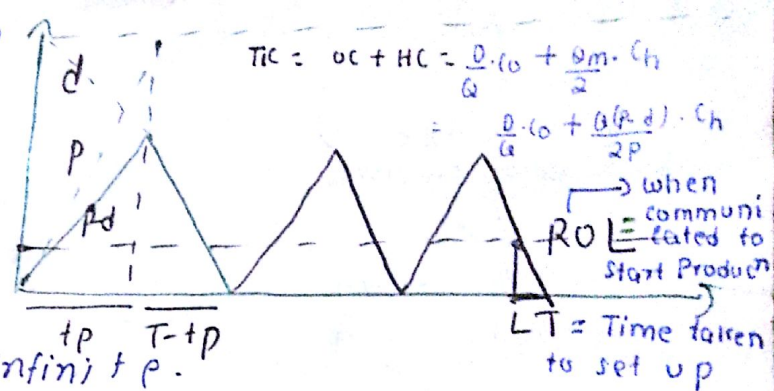 d.
TIC = OC + HC = D/Q . Co + Qm/2 . Ch
= D/Q . Co + Q(p-d)/2p . Ch
p
Pd
→ when
communi
ROL = cated to
Start Producn
tp T-tp
LT = Time taken
to set up
nfinite.